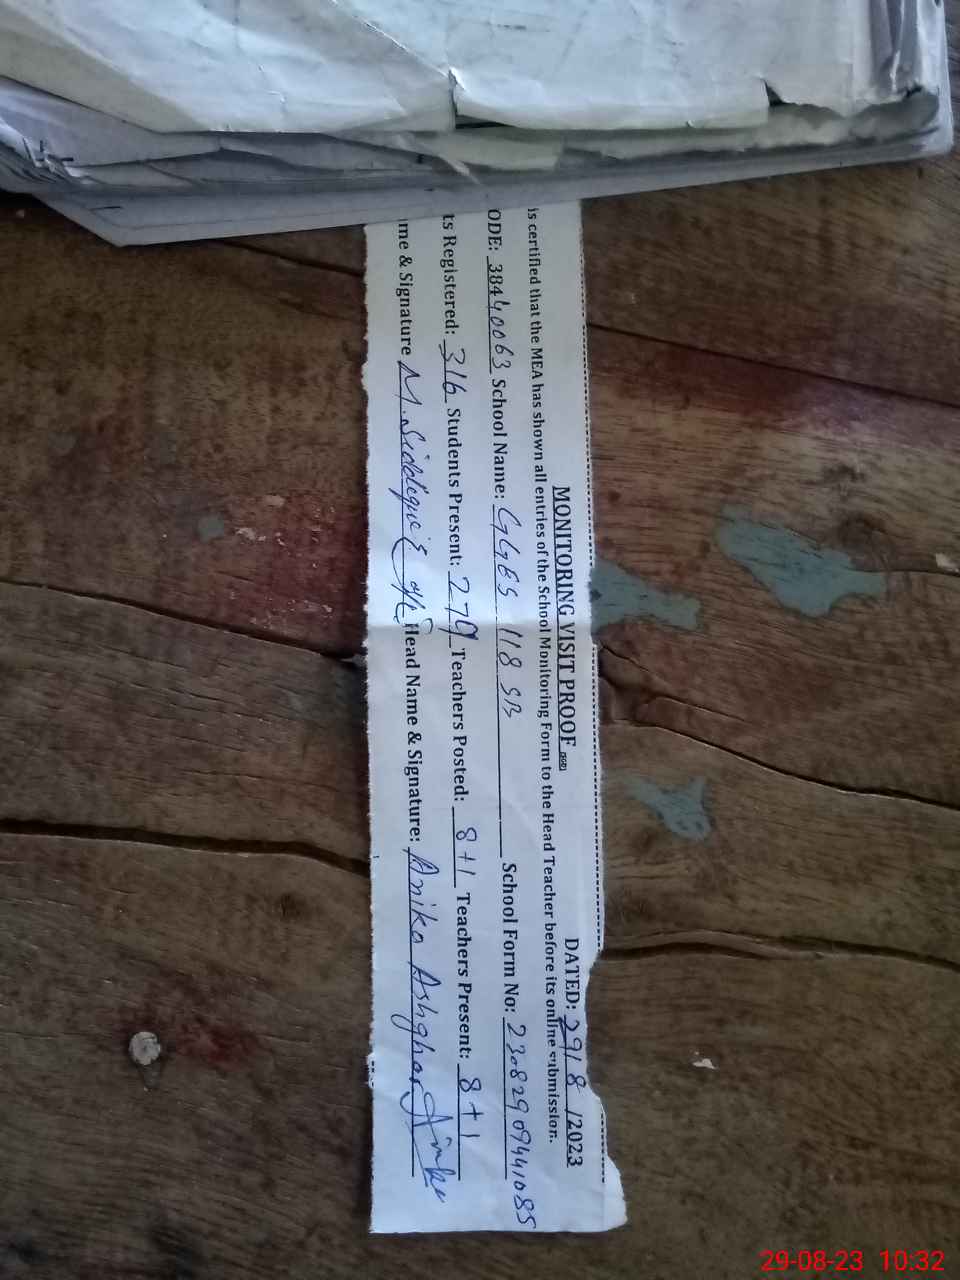 MONITORING VISIT PROOF (SGD) DATED: 29/8/2023
is certified that the MEA has shown all entries of the School Monitoring Form to the Head Teacher before its online submission.
ODE: 38440063 School Name: GGES 118 SB School Form No: 23082909441085
ts Registered: 316 Students Present: 279 Teachers Posted: 8+1 Teachers Present: 8+1
me & Signature M. Siddique Head Name & Signature: Aniko Ashghar
29-08-23 10:32